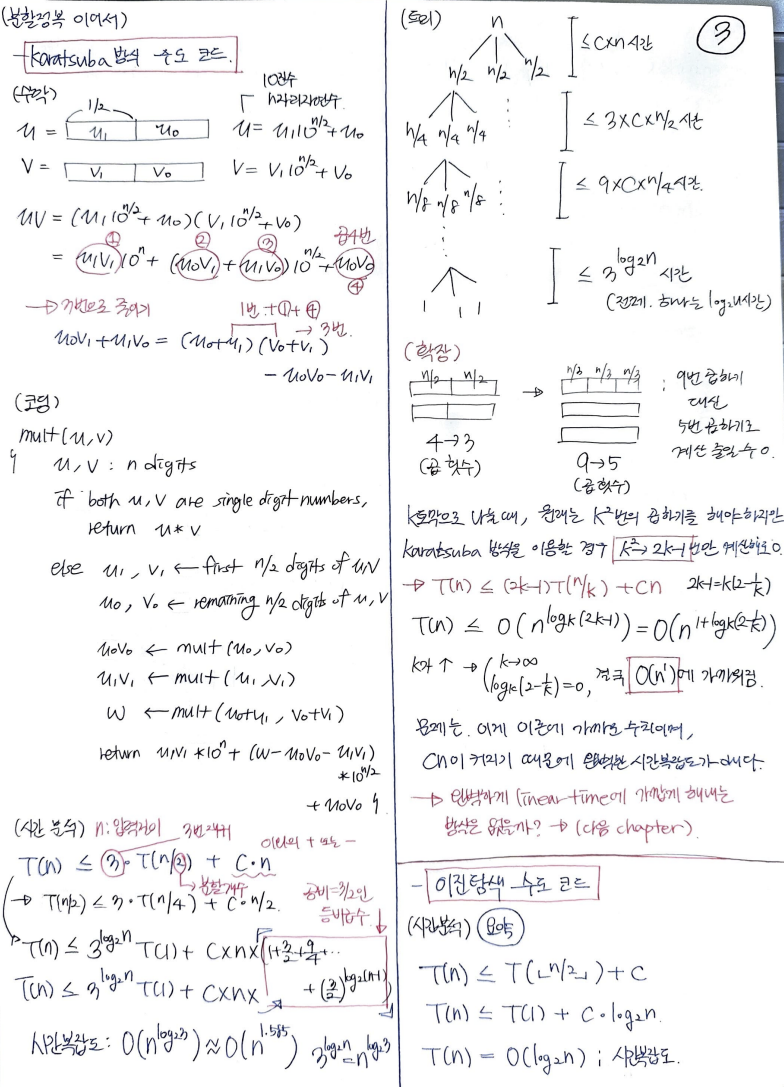 (분할정복 이어서)
- Karatsuba 방식 수도 코드.
(수학)
1/2
10진수
n자리자연수
u = u₁ u₀ u = u₁10^{n/2} + u₀
V = V₁ V₀ V = V₁10^{n/2} + V₀
uV = (u₁10^{n/2} + u₀)(V₁10^{n/2} + V₀)
① ② ③ 곱4번
= u₁V₁10ⁿ + (u₀V₁ + u₁V₀)10^{n/2} + u₀V₀
④
→ 3번으로 줄이기 1번 + ① + ④
→ 3번.
u₀V₁ + u₁V₀ = (u₀+u₁)(V₀+V₁)
- u₀V₀ - u₁V₁
(코딩)
mult(u, v)
{ u, v : n digits
if both u, v are single digit numbers,
return u * v
else u₁, v₁ ← first n/2 digits of u, v
u₀, v₀ ← remaining n/2 digits of u, v
u₀v₀ ← mult(u₀, v₀)
u₁v₁ ← mult(u₁, v₁)
w ← mult(u₀+u₁, v₀+v₁)
return u₁v₁ * 10ⁿ + (w - u₀v₀ - u₁v₁)
* 10^{n/2}
+ u₀v₀ }
(시간 분석) n: 입력길이 3번 재귀
이외의 + 또는 -
T(n) ≤ 3 · T(n/2) + C · n
분할개수
→ T(n/2) ≤ 3 · T(n/4) + C · n/2
공비=3/2인
등비급수
T(n) ≤ 3^{log₂n} T(1) + C×n×(1 + 3/2 + 9/4 + ···
T(n) ≤ 3^{log₂n} T(1) + C×n× + (3/2)^{log₂(n-1)})
시간복잡도: O(n^{log₂3}) ≈ O(n^{1.585}) 3^{log₂n} = n^{log₂3}
(트리) ③
n
≤ C×n 시간
n/2 n/2 n/2
n/4 n/4 n/4 ≤ 3×C×n/2 시간
n/8 n/8 n/8 ≤ 9×C×n/4 시간.
≤ 3^{log₂n} 시간
1 1 1 (전제. 하나는 log₂n시간)
(확장)
n/2 n/2 → n/3 n/3 n/3 ; 9번 곱하기
대신
5번 곱하기로
계산 줄일 수 O.
4→3 9→5
(곱 횟수) (곱 횟수)
k토막으로 나눌 때, 원래는 k²번의 곱하기를 해야하지만
Karatsuba 방식을 이용한 경우 k² → 2k-1 번만 계산해도 O.
→ T(n) ≤ (2k-1)T(n/k) + Cn 2k-1=k(2-1/k)
T(n) ≤ O(n^{logₖ(2k-1)}) = O(n^{1+logₖ(2-1/k)})
k가 ↑ → (k→∞
logₖ(2-1/k)=0, 결국 O(n¹)에 가까워짐.
문제는. 이게 이론에 가까운 수치이며,
Cn이 커지기 때문에 완벽한 시간복잡도가 아니다.
→ 완벽하게 linear-time에 가깝게 해내는
방식은 없을까? → (다음 chapter).
- 이진탐색 수도 코드
(시간분석) 요약
T(n) ≤ T(⌊n/2⌋) + C
T(n) ≤ T(1) + C · log₂n.
T(n) = O(log₂n) ; 시간복잡도.